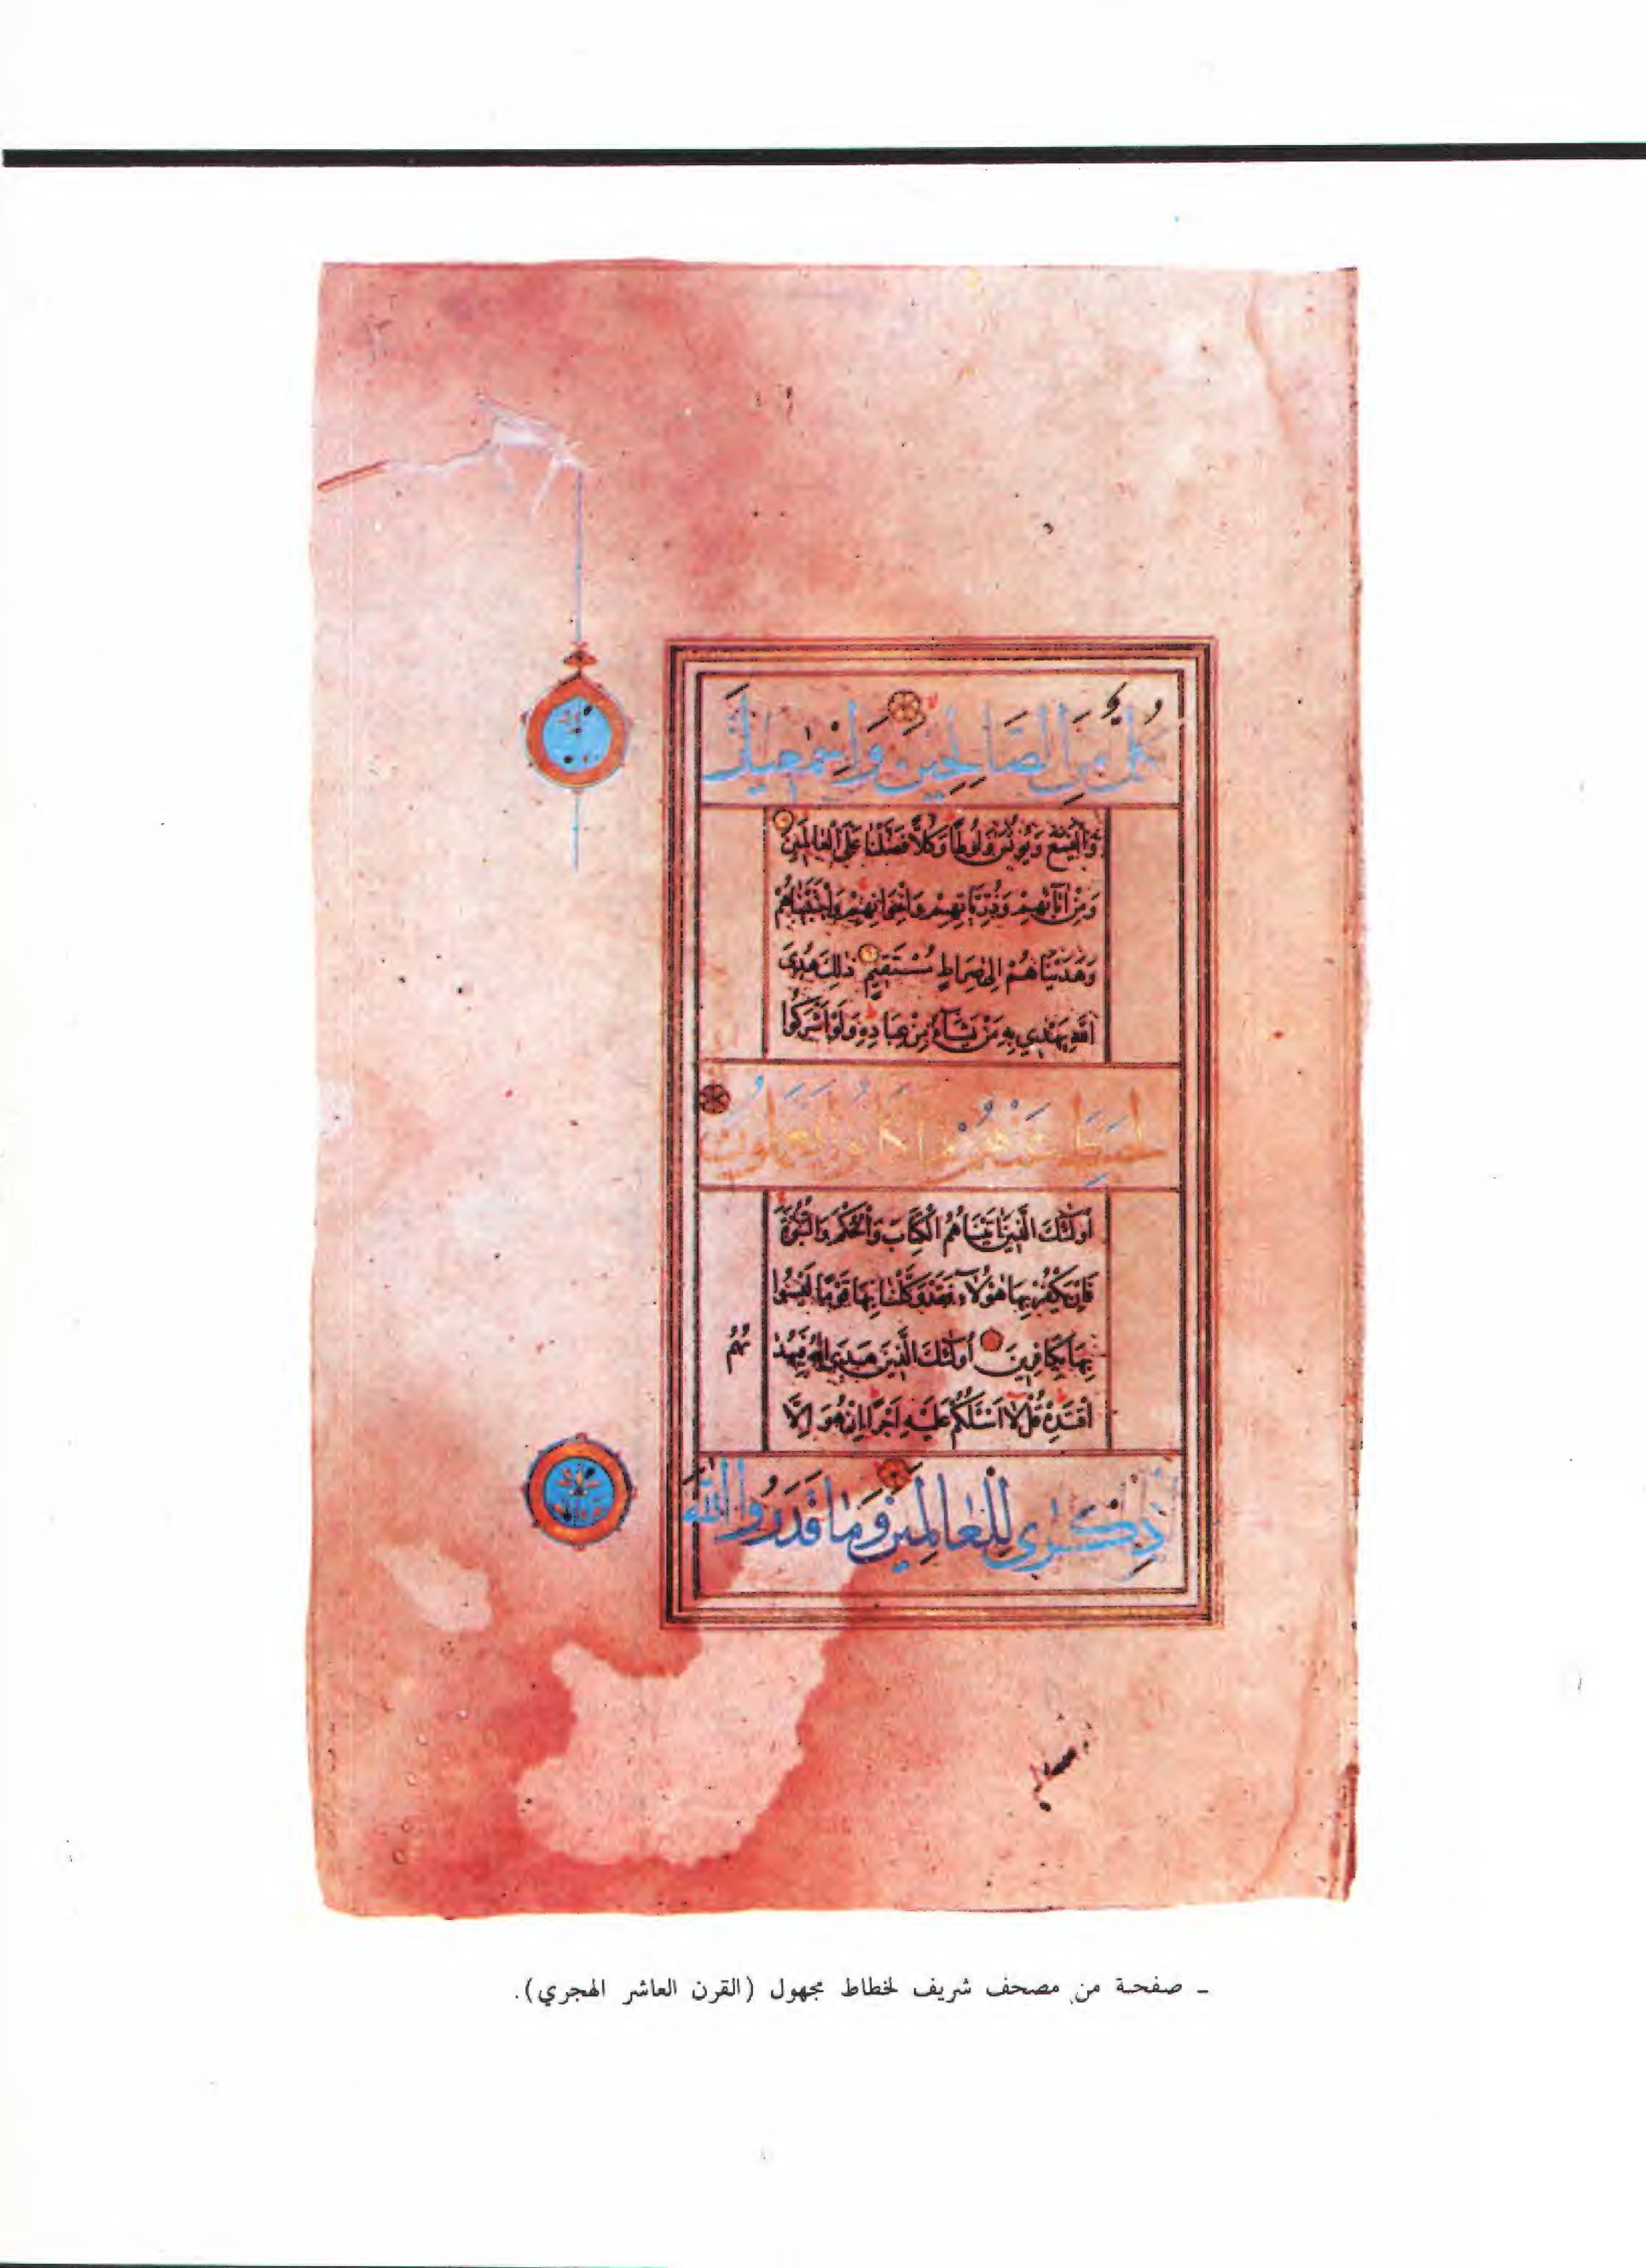 كُلٌّ مِنَ الصَّالِحِينَ وَاِسْمٰعِيلَ
وَالْيَسَعَ وَيُونُسَ وَلُوطًا وَكُلًّا فَضَّلْنَا عَلَى الْعَالَمِينَ
وَمِنْ اٰبَآئِهِمْ وَذُرِّيَّاتِهِمْ وَاِخْوَانِهِمْ وَاجْتَبَيْنَاهُمْ
وَهَدَيْنَاهُمْ اِلٰى صِرَاطٍ مُسْتَقِيمٍ ذٰلِكَ هُدَى
اللّٰهِ يَهْدِي بِهِ مَنْ يَشَآءُ مِنْ عِبَادِهِ وَلَوْ اَشْرَكُوا
لَحَبِطَ عَنْهُمْ مَا كَانُوا يَعْمَلُونَ
اُولٰئِكَ الَّذِينَ اٰتَيْنَاهُمُ الْكِتَابَ وَالْحُكْمَ وَالنُّبُوَّةَ
فَاِنْ يَكْفُرْ بِهَا هٰؤُلَآءِ فَقَدْ وَكَّلْنَا بِهَا قَوْمًا لَيْسُوا
بِهَا بِكَافِرِينَ اُولٰئِكَ الَّذِينَ هَدَى اللّٰهُ فَبِهُدٰ
ىهُمُ
اقْتَدِهْ قُلْ لَآ اَسْئَلُكُمْ عَلَيْهِ اَجْرًا اِنْ هُوَ اِلَّا
ذِكْرٰى لِلْعَالَمِينَ وَمَا قَدَرُوا اللّٰهَ
ـ صفحة من مصحف شريف لخطاط مجهول (القرن العاشر الهجري).